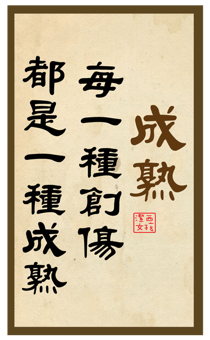 成熟
每一種創傷
都是一種成熟